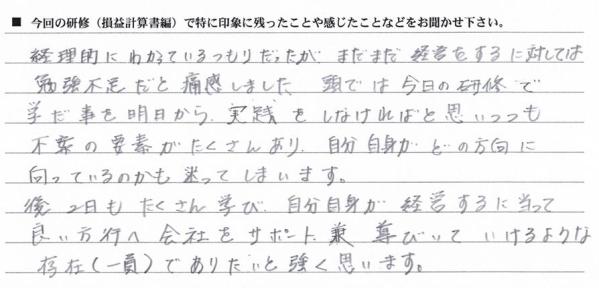 ■ 今回の研修(損益計算書編)で特に印象に残ったことや感じたことなどをお聞かせ下さい。
経理的にわかっているつもりだったが まだまだ経営をするに対しては
勉強不足だと痛感しました 頭では今日の研修で
学だ事を明日から、実践をしなければと思いつつも
不安の要素がたくさんあり、自分自身がどの方向に
向っているのかも迷ってしまいます。
後2日もたくさん学び、自分自身が経営するに当って
良い方行へ会社をサポート、兼 導びいていけるような
存在(一員)でありたいと強く思います。